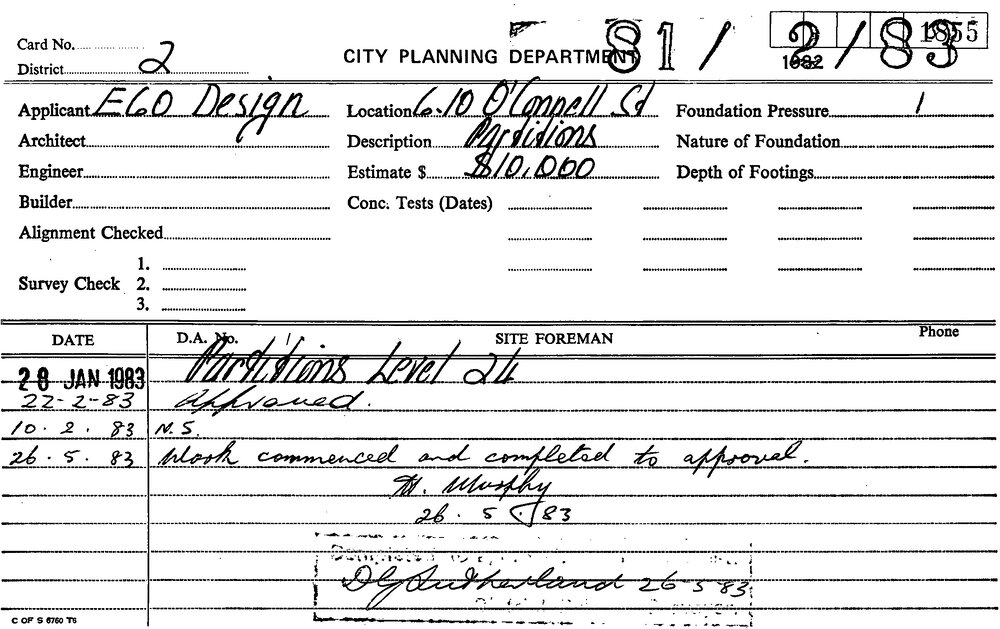 Card No.
District 2
CITY PLANNING DEPARTMENT
81 / 2 / 83
1855
1982
Applicant EGO Design Location 6.10 O'Connell St Foundation Pressure
Architect Description Partitions Nature of Foundation
Engineer Estimate $ $10,000 Depth of Footings
Builder Conc. Tests (Dates)
Alignment Checked
1.
Survey Check 2.
3.
DATE D.A. No. SITE FOREMAN Phone
28 JAN 1983 Partitions Level 24
22-2-83 Approved.
10.2.83 N.S.
26.5.83 Work commenced and completed to approval.
Murphy
26.5.83
Completed
Sutherland 26-5-83
C OF S 6760 T6